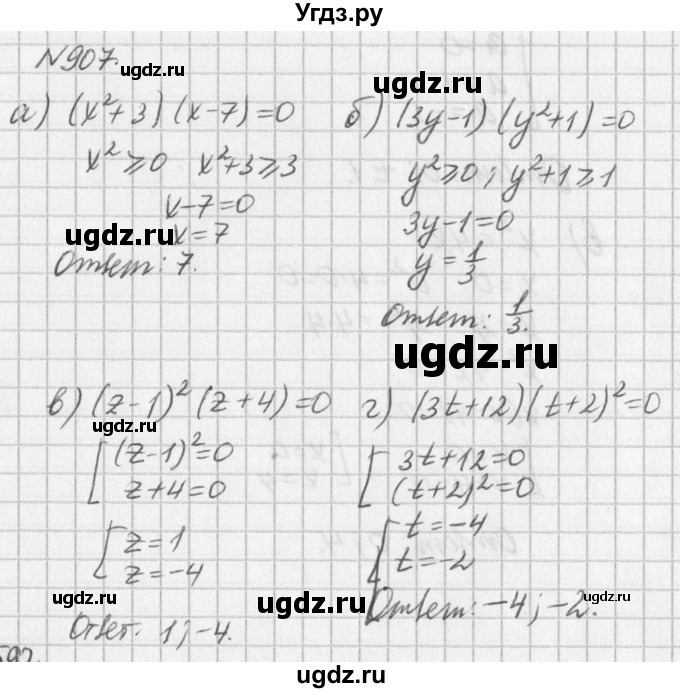 Угдз.ру
N907.
ugdz.ru
ugdz.ru
а) (x²+3)(x-7)=0
x²⩾0 x²+3⩾3
x-7=0
ugdz.ru
x=7
Ответ: 7.
б) (3y-1)(y²+1)=0
y²⩾0; y²+1⩾1
3y-1=0
y=1/3
Ответ: 1/3.
ugdz.ru
в) (z-1)²(z+4)=0
ugdz.ru
[(z-1)²=0
z+4=0
[z=1
z=-4
Ответ. 1; -4.
г) (3t+12)(t+2)²=0
[3t+12=0
(t+2)²=0
[t=-4
t=-2
Ответ: -4; -2.
ugdz.ru
ugdz.ru